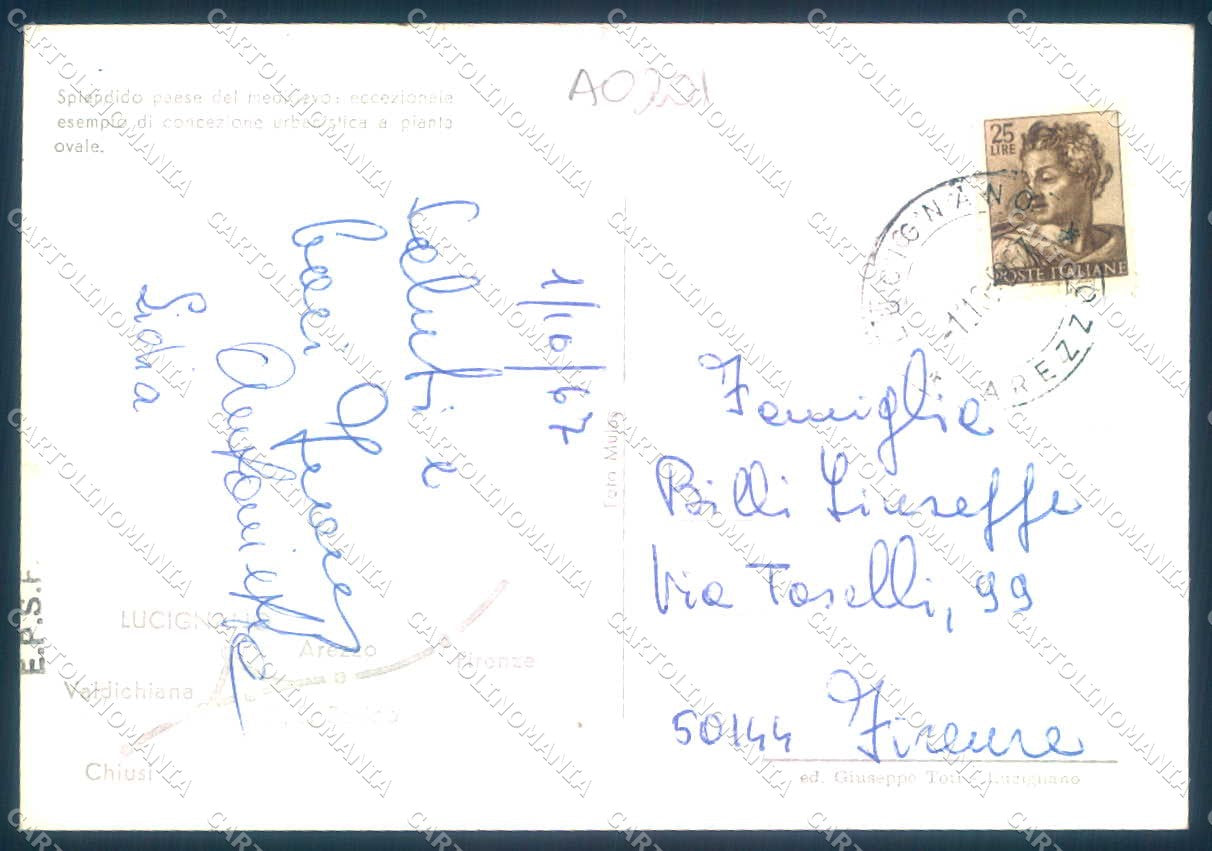 A0221
Splendido paese del medioevo: eccezionale
esempio di concezione urbanistica a pianta
ovale.
25
LIRE
POSTE ITALIANE
LUCIGNANO
* AREZZO *
1/10/67
Saluti e
baci
Lidia
Foto Mujas
Famiglia
Billi Giuseppe
Via Toselli, 99
50144 Firenze
ed. Giuseppe Lucignano
E.P.S.
LUCIGNANO
Arezzo
Firenze
Valdichiana
Chiusi
CARTOLINOMANIA